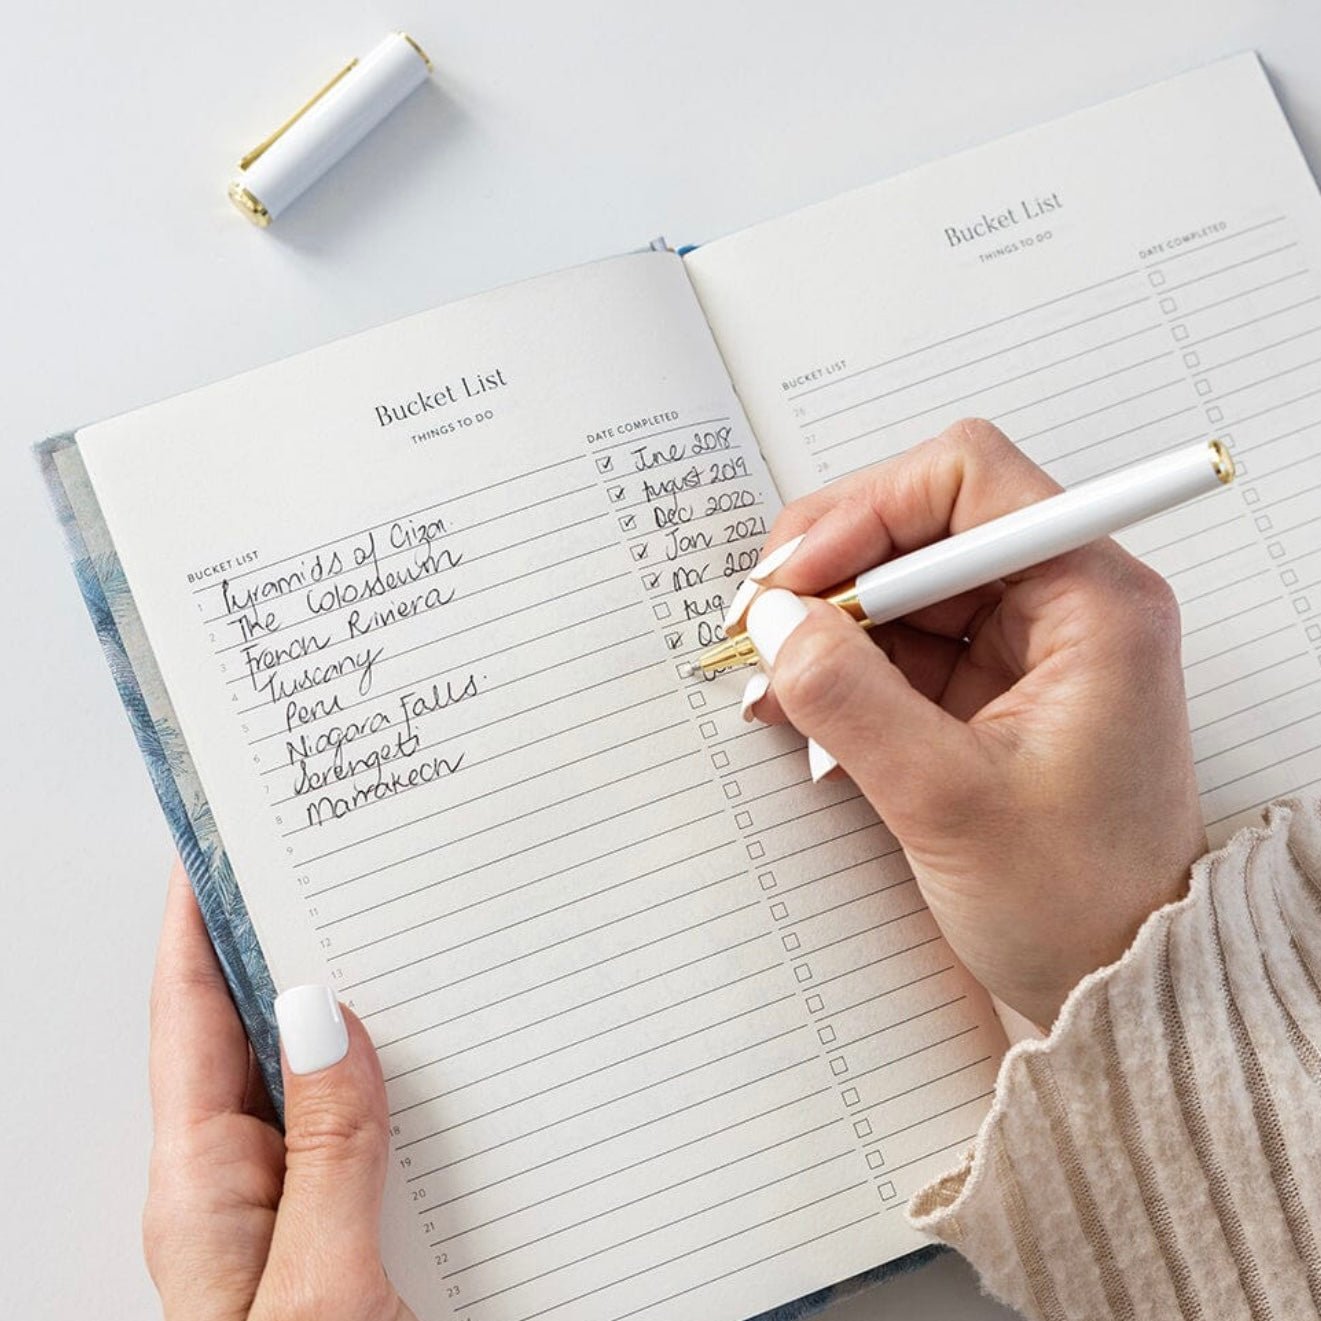 Bucket List
THINGS TO DO
BUCKET LIST DATE COMPLETED
1 Pyramids of Giza. June 2018
2 The Colosseum August 2019
3 French Riviera Dec 2020.
4 Tuscany Jan 2021
5 Peru Mar
6 Niagara Falls. Aug
7 Serengeti
8 Marrakech
9
10
11
12
13
18
19
20
21
22
23
Bucket List
THINGS TO DO
BUCKET LIST DATE COMPLETED
26
27
28